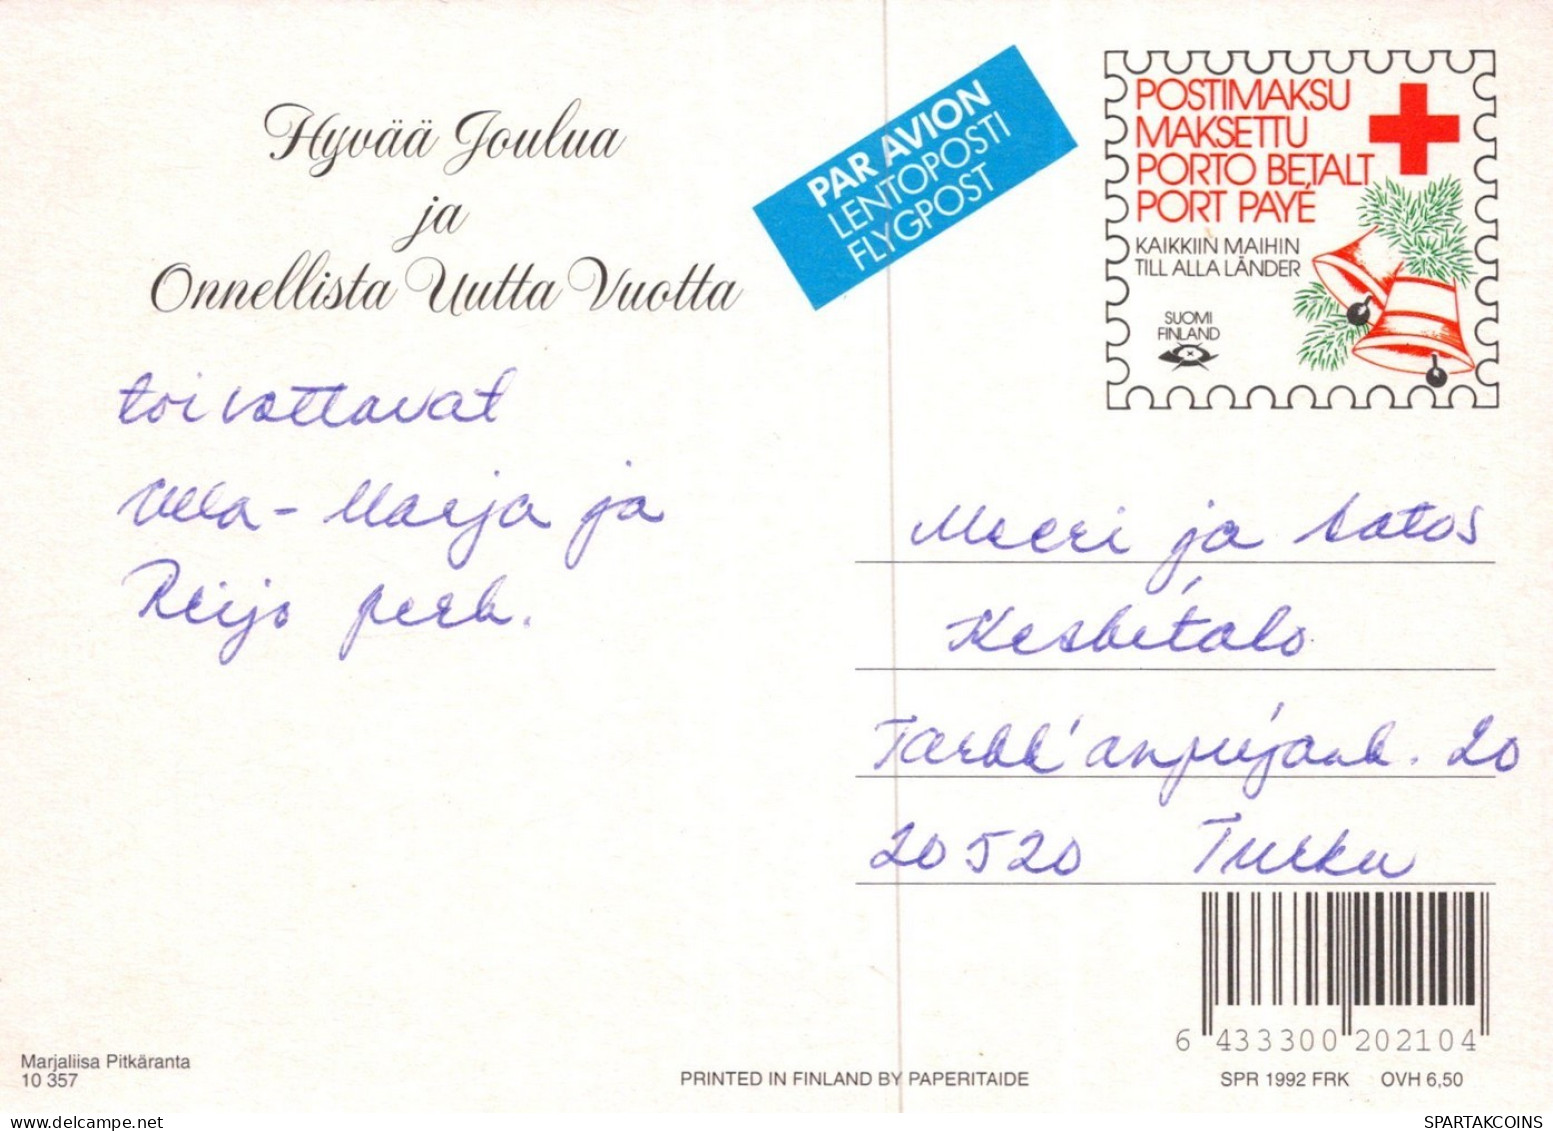 Hyvää Joulua
ja
Onnellista Uutta Vuotta
toivottavat
Ulla-Marja ja
Reijo perh.
PAR AVION
LENTOPOSTI
FLYGPOST
POSTIMAKSU
MAKSETTU
PORTO BETALT
PORT PAYÉ
KAIKKIIN MAIHIN
TILL ALLA LÄNDER
SUOMI
FINLAND
Meeri ja
Keskitalo
Tarkk'ampujank. 20
20520 Turku
6 433300 202104
SPR 1992 FRK OVH 6,50
Marjaliisa Pitkäranta
10 357
PRINTED IN FINLAND BY PAPERITAIDE
SPARTAKCOINS